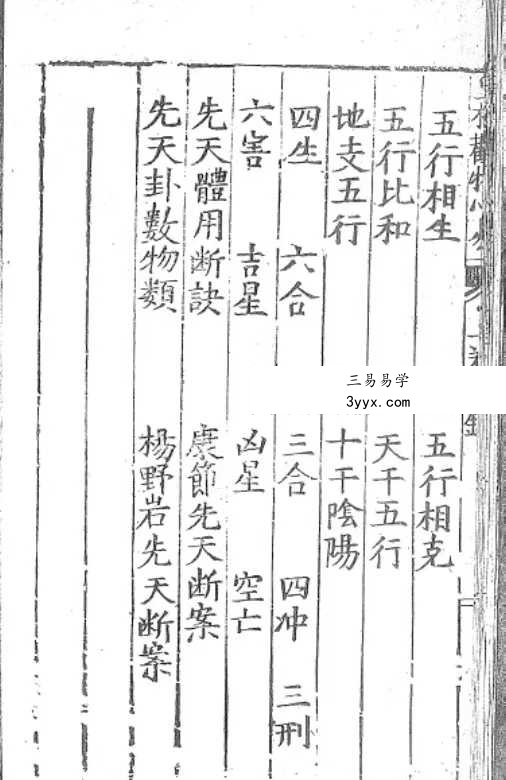 五行相生 五行相克
五行比和 天干五行
地支五行 十干陰陽
四生 六合 三合 四冲 三刑
六害 吉星 凶星 空亡
先天體用断訣 康節先天断案
先天卦數物類 楊野岩先天断案
三易易学
3yyx.com